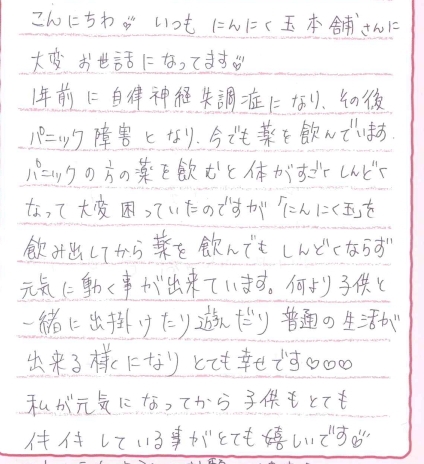 こんにちわ♡ いつも にんにく玉本舗さんに
大変 お世話になってます♡
1年前に自律神経失調症になり、その後
パニック障害となり、今でも薬を飲んでいます.
パニックの方の薬を飲むと体がすごくしんどく
なって大変困っていたのですが「にんにく玉」を
飲み出してから薬を飲んでもしんどくならず
元気に動く事が出来ています。何より子供と
一緒に出掛けたり遊んだり普通の生活が
出来る様になりとても幸せです♡♡♡
私が元気になってから子供もとても
イキイキしている事がとても嬉しいです♡